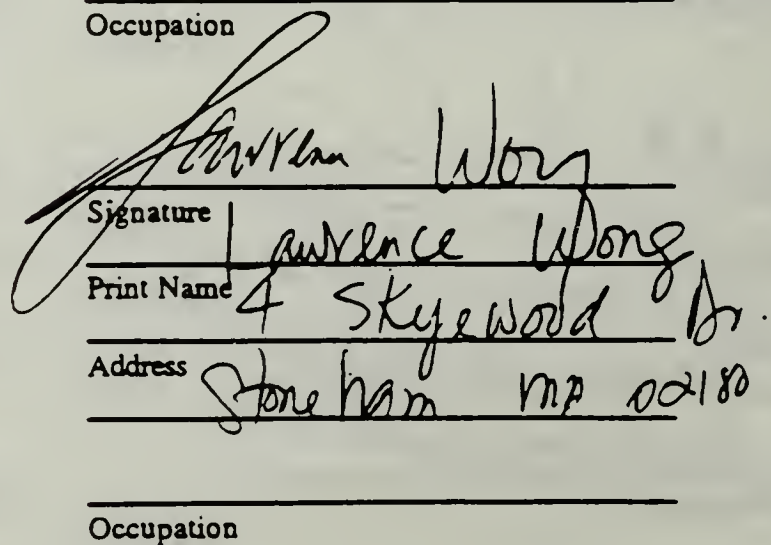 Occupation
Lawrence Wong
Signature
Lawrence Wong
Print Name
4 Skyewood Dr.
Address
Stoneham MA 02180
Occupation